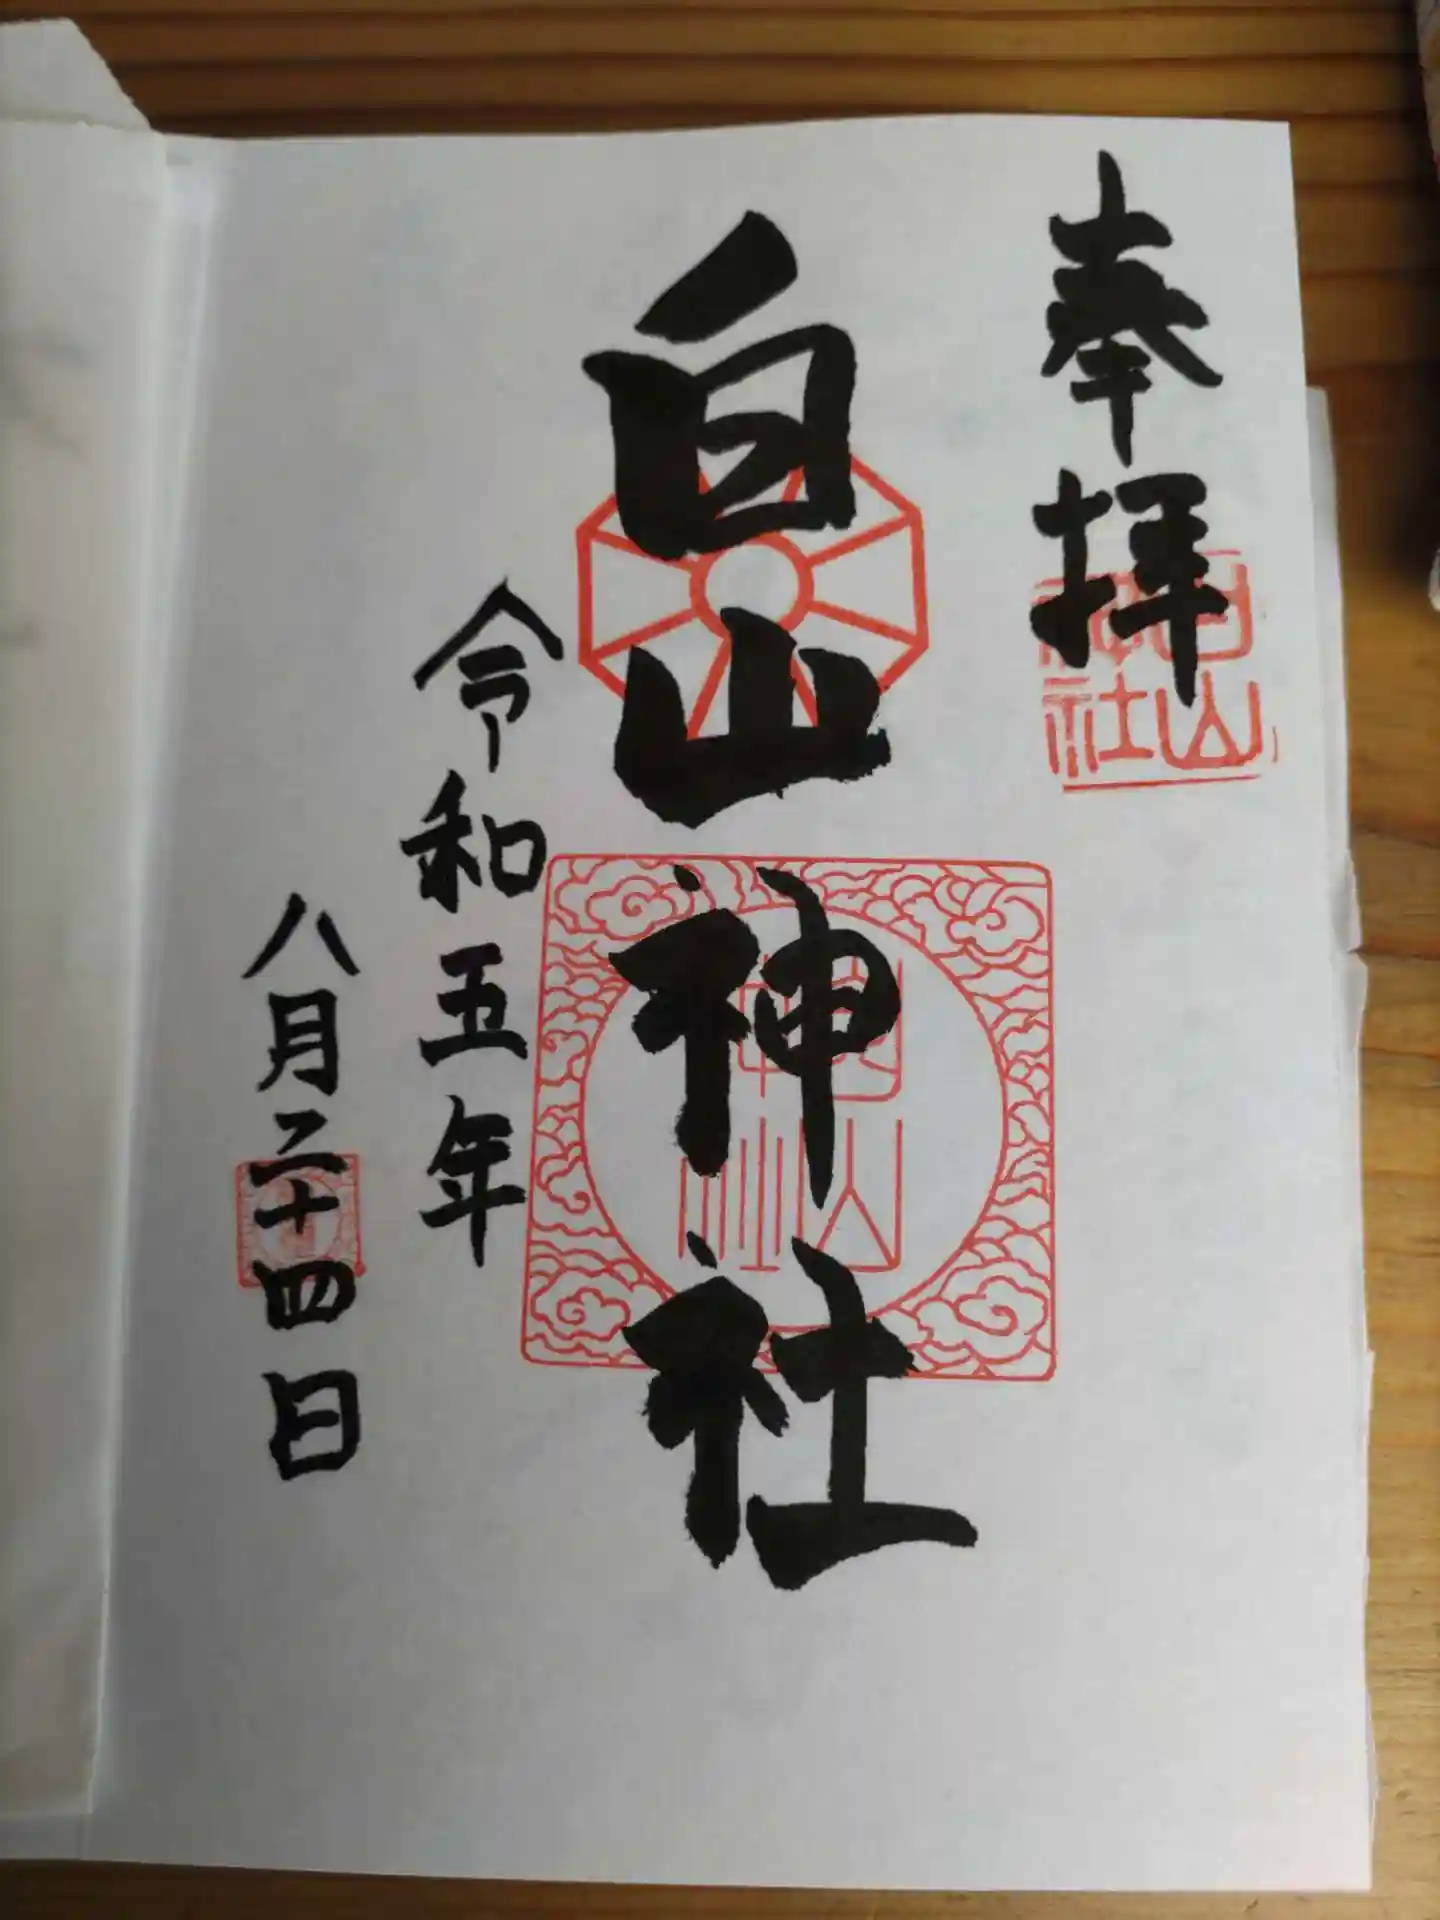 奉拝
白山神社
白山神社
令和五年
八月二十四日